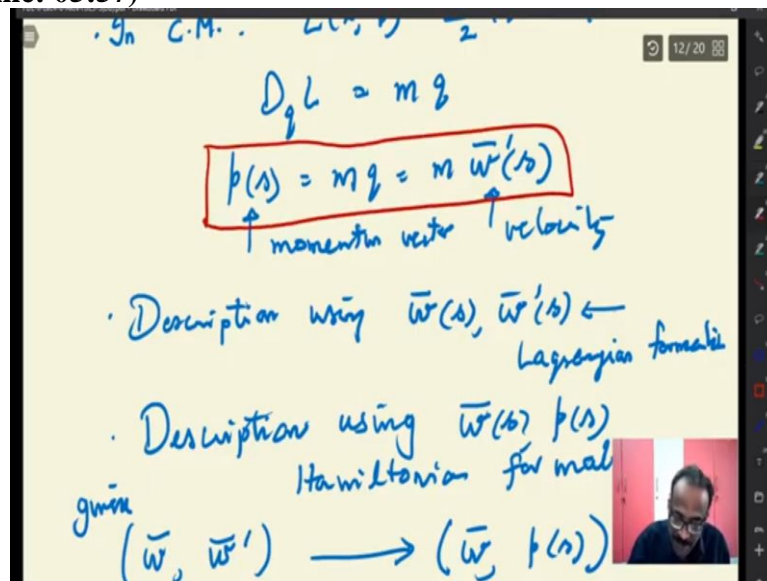 · In C.M. :
12/20
D_q L = m q
p(s) = m q = m w̄'(s)
momentum vector velocity
· Description using w̄(s), w̄'(s) ←
Lagrangian formalis
· Description using w̄(s) p(s)
Hamiltonian formal
given
(w̄, w̄') ⟶ (w̄, p(s))